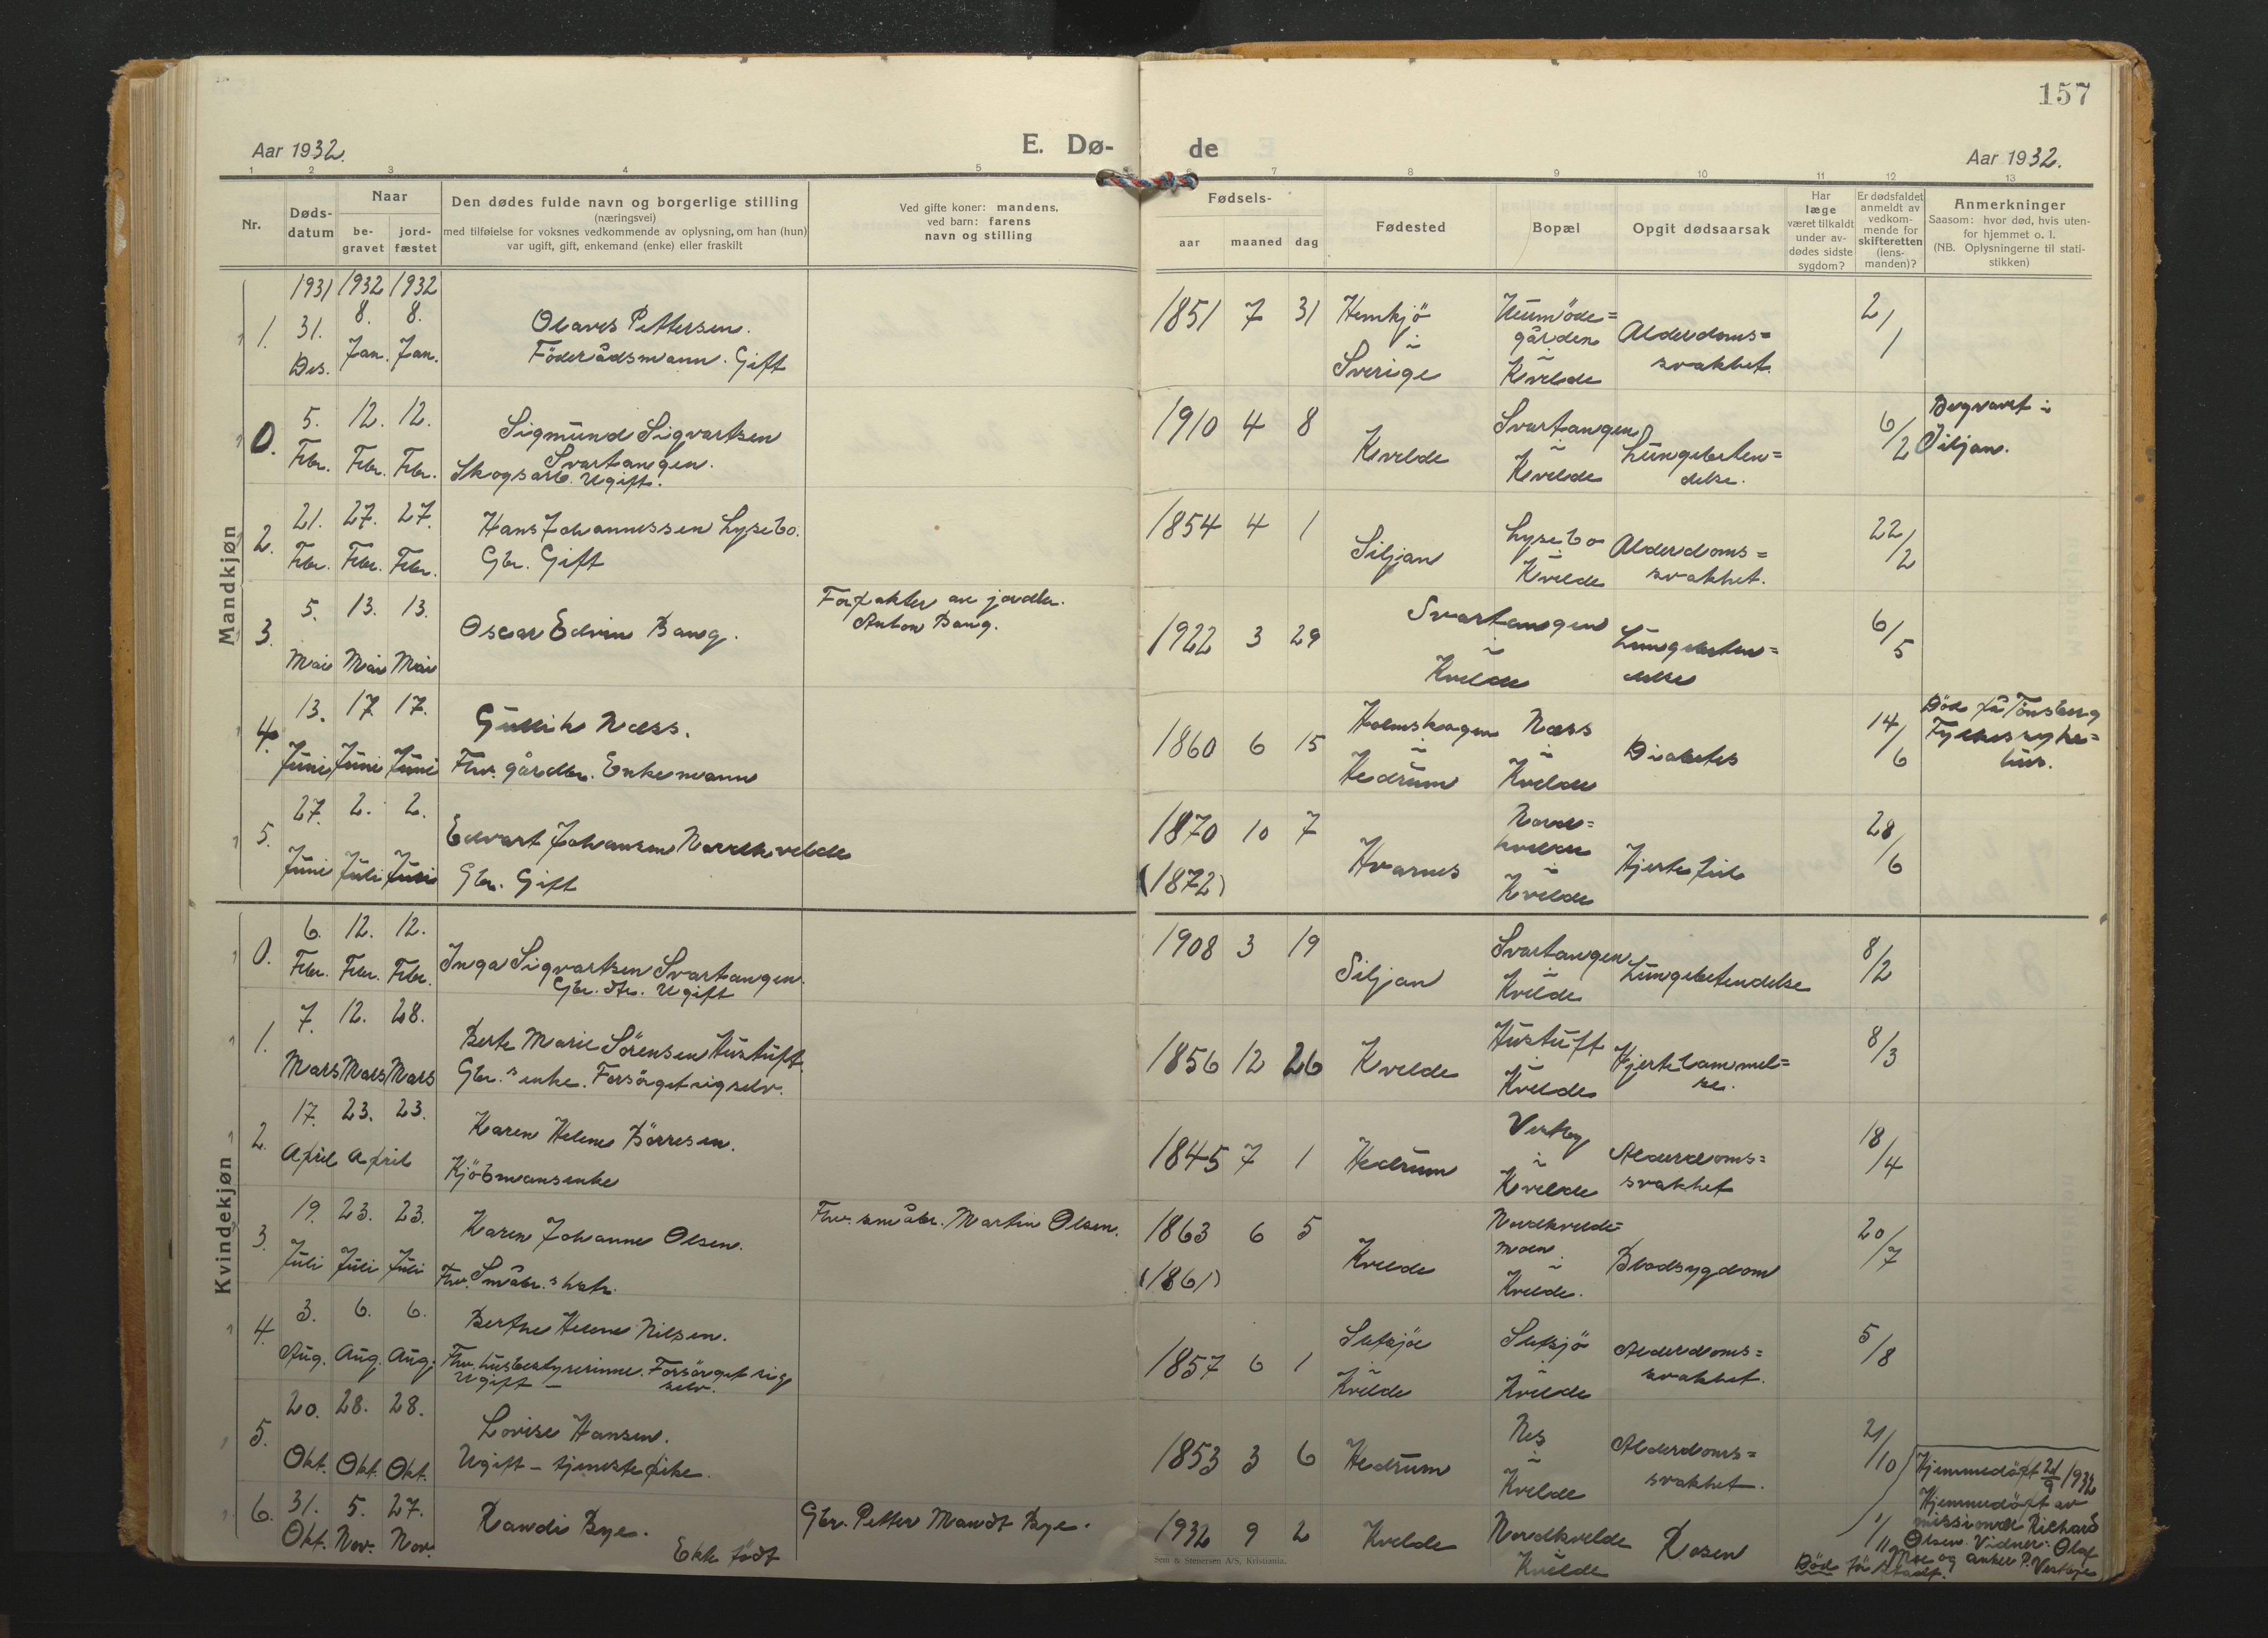 157
Aar 1932.
E. Dø-
de
Aar 1932.
1 2 3 4 5 7 8 9 10 11 12 13
Nr.
Døds-
datum
Naar
be-
gravet
jord-
fæstet
Den dødes fulde navn og borgerlige stilling
(næringsvei)
med tilføielse for voksnes vedkommende av oplysning, om han (hun)
var ugift, gift, enkemand (enke) eller fraskilt
Ved gifte koner: mandens,
ved barn: farens
navn og stilling
Fødsels-
aar maaned dag
Fødested
Bopæl
Opgit dødsaarsak
Har
læge
været tilkaldt
under av-
dødes sidste
sygdom?
Er dødsfaldet
anmeldt av
vedkom-
mende for
skifteretten
(lens-
manden)?
Anmerkninger
Saasom: hvor død, hvis uten-
for hjemmet o. l.
(NB. Oplysningerne til stati-
stikken)
Mandkjøn
1931 1932 1932
1. 31. 8. 8.
Des. Jan. Jan.
Olaves Pettersen.
Föderådsmann. Gift
1851 7 31
i
Sverige
gården
i
Kvelde
Alderdoms=
svakhet.
2/1
0. 5. 12. 12.
Febr. Febr. Febr.
Sigmund Sigvartsen
Svartangen.
Skogsarb. Ugift.
1910 4 8
Kvelde
Svartangen
i
Kvelde
Lungebeten=
delse.
6/2
Begravet i
Siljan.
2. 21. 27. 27.
Febr. Febr. Febr.
Hans Johannessen Lysebo.
Gbr. Gift
1854 4 1
Siljan
Lysebo
i
Kvelde
Alderdoms=
svakhet.
22/2
3. 5. 13. 13.
Mai Mai Mai
Oscar Edvin Bang.
Forpakter av jordbr.
Anton Bang.
1922 3 29
Svartangen
i
Kvelde
Lungebeten=
delse
6/5
4. 13. 17 17.
Juni Juni Juni
Gullik Næss.
Fhv. gårdbr. Enkemann
1860 6 15
Holmskogen
i
Hedrum
Næss
i
Kvelde
Diabetes
14/6
Död på Tönsberg
Fylkessyke=
hus.
5. 27. 2. 2.
Juni Juli Juli
Edvart Johansen Nordkvelde
Gbr. Gift
1870 10 7
(1872)
Hvarnes
Nord=
kvelde
i
Kvelde
Hjertefeil
28/6
Kvindekjøn
0. 6. 12. 12.
Febr. Febr. Febr.
Inga Sigvartsen Svartangen.
Gbr. dtr. Ugift
1908 3 19
Siljan
Svartangen
i
Kvelde
Lungebetendelse
8/2
1. 7. 12. 28.
Mars Mars Mars
Berte Marie Sörensen Hustuft.
Gbr.s enke. Forsörget sig selv.
1856 12 26
Kvelde
Hustuft
i
Kvelde
Hjertelammel=
se.
8/3
2. 17. 23. 23.
April April
Karen Helene Börresen.
Kjöbmansenke
1845 7 1
Hedrum
Vestby
i
Kvelde
Alderdoms=
svakhet
18/4
3. 19. 23. 23.
Juli Juli Juli
Karen Johanne Olsen.
Fhv. Småbr.s
Fhv. småbr. Martin Olsen.
1863 6 5
(1861)
Kvelde
Nordkvelde=
moen
i
Kvelde.
Blodsygdom
20/7
4. 3. 6. 6.
Aug. Aug. Aug.
Berthe Helene Nilsen.
Fhv. husbestyrerinne. Forsörget sig
Ugift – selv.
1857 6 1
i
Kvelde
i
Kvelde
Alderdoms=
svakhet.
5/8
5. 20. 28. 28.
Okt. Okt. Okt.
Lovise Hansen.
Ugift – tjenestepike.
1853 3 6
Hedrum
Nes
i
Kvelde
Alderdoms=
svakhet.
21/10
6. 31. 5. 27.
Okt. Nov. Nov.
Randi Bye.
Ekte födt
Gbr. Petter Mandt Bye.
1932 9 2
Kvelde
Nordkvelde
i
Kvelde
Rosen
1/11
Hjemmedöpt 21/9 1932
Hjemmedöpt av
missionær Richard
Olsen. Vidner: Olaf
Moe og Anker P. Vestbye
Död
Sem & Stenersen A/S, Kristiania.